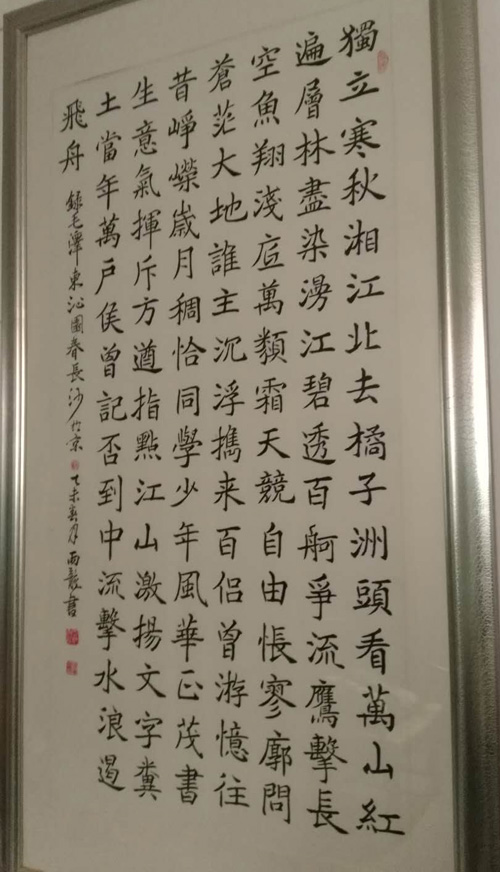 獨立寒秋湘江北去橘子洲頭看萬山紅
遍層林盡染漫江碧透百舸爭流鷹擊長
空魚翔淺底萬類霜天競自由悵寥廓問
蒼茫大地誰主沉浮攜来百侶曾游憶往
昔崢嶸歲月稠恰同學少年風華正茂書
生意氣揮斥方遒指點江山激揚文字糞
土當年萬户侯曾記否到中流擊水浪遏
飛舟 錄毛澤東沁園春長沙於京 乙未月雨龍書